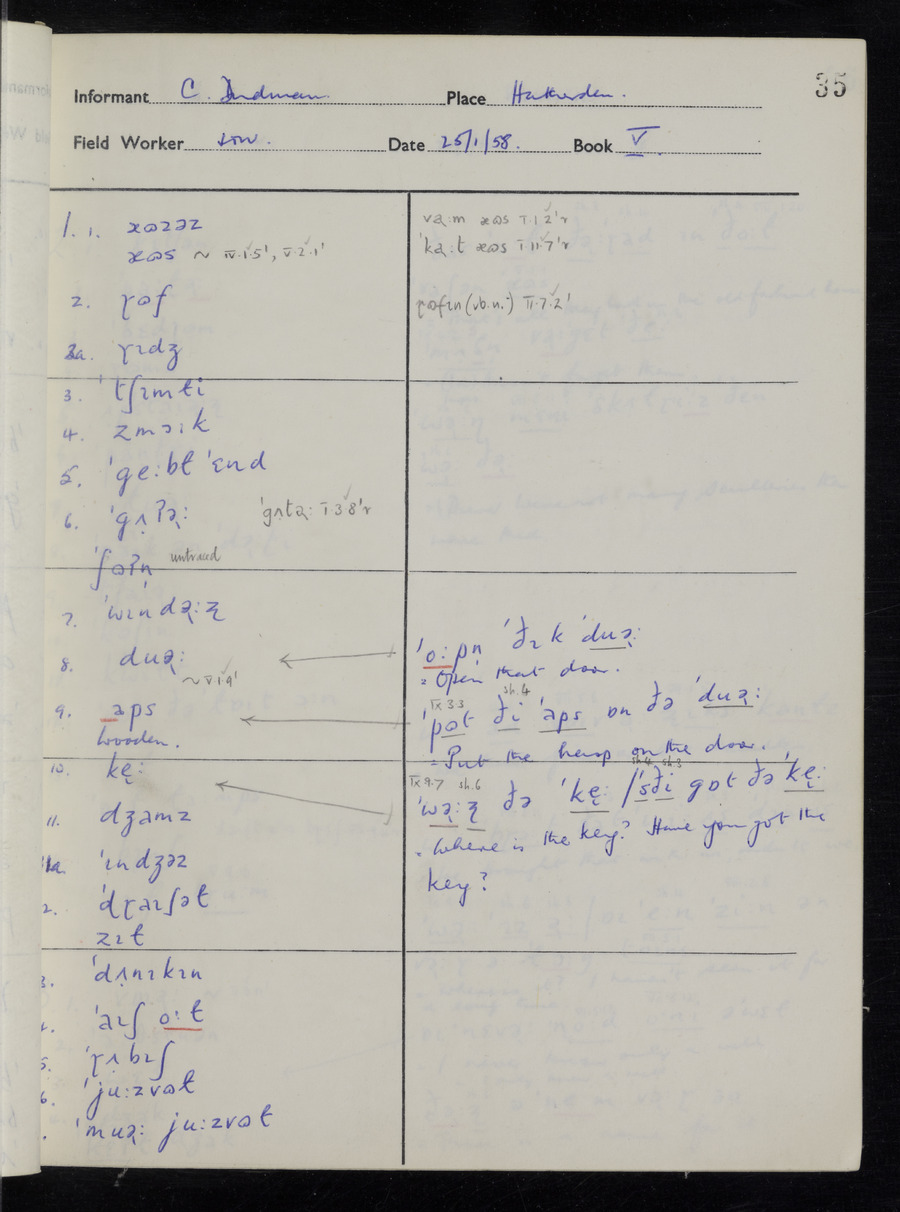 35
Informant C. Place Hatherden.
Field Worker Date 25/1/58. Book V
1. 1. ӕɷzəz
ӕɷs ~ IV.1.5', V.2.1'
2. ɽɷf
2a. ɽɪdʒ
3. 'tʃɪmti
4. zmɔɪk
5. 'ge:bt 'ɛnd
6. 'gʌʔə̢: 'gʌtə̢: I 3 8'r
'ʃɷʔn̩ untraced
7. 'wɪndə̢:z̢
8. duə̢:
~ V 1 9'
9. aps
wooden.
10. ke̢:
11. dʒamz
11a. 'ɪndʒəz
2. 'dɽaɪʃət
zɪt
3. 'dʌnɪkɪn
'aɪʃ o:t
5. 'ɽʌbɪʃ
6. 'ju:zvɷt
'muə̢: ju:zvɷt
və̢:m ӕɷs I 1 2'r
'kə̢:t ӕɷs I 11 7'r
ɽɷfɪn (vb.n.) II.7.2'
'o:pn 'ðɪk 'duə̢:
= Open that door.
IX 3 3 sh.4
'pɷt ði 'aps ɒn ðə 'duə̢:
= Put the hasp on the door.
IX 9.7 sh.6 sh.4 sh.3
'wə̢:z̢ ðə 'ke̢: / 'sði gɒt ðə 'ke̢:
= Where is the key? Have you got the
key?